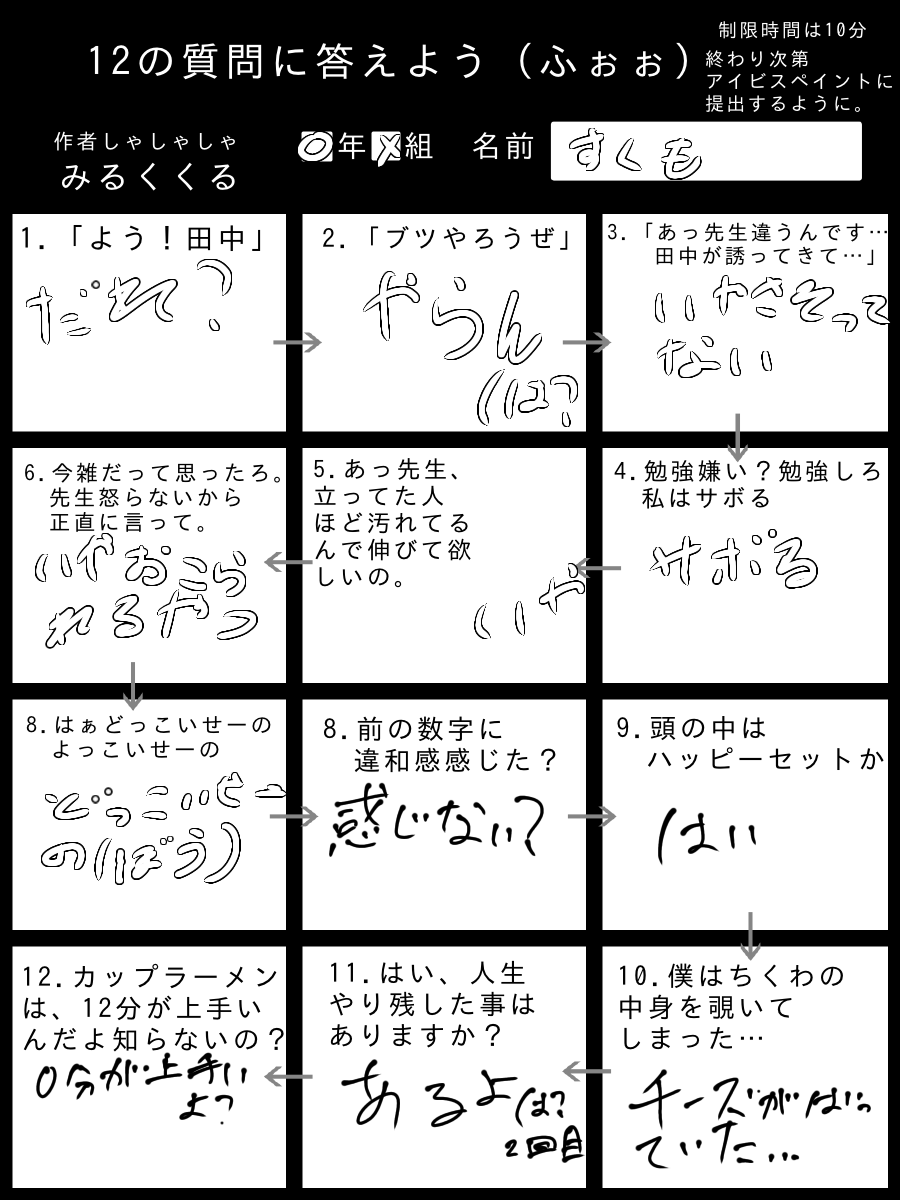 制限時間は10分
12の質問に答えよう（ふぉぉ）
終わり次第
アイビスペイントに
提出するように。
作者しゃしゃしゃ
みるくくる
〇年×組 名前 すくも
1.「よう！田中」
だれて？
2.「ブツやろうぜ」
やらん
(は？
3.「あっ先生違うんです…
田中が誘ってきて…」
いやさそって
ない
4.勉強嫌い？勉強しろ
私はサボる
サボる
5.あっ先生、
立ってた人
ほど汚れてる
んで伸びて欲
しいの。
いや
6.今雑だって思ったろ。
先生怒らないから
正直に言って。
いやおこら
れるやつ
8.はぁどっこいせーの
よっこいせーの
どっこいせー
の(ぼう)
8.前の数字に
違和感感じた？
感じない？
9.頭の中は
ハッピーセットか
はい
10.僕はちくわの
中身を覗いて
しまった…
チーズがはいっ
ていた…
11.はい、人生
やり残した事は
ありますか？
あるよ(は？
2回目
12.カップラーメン
は、12分が上手い
んだよ知らないの？
0分が上手い
よ？